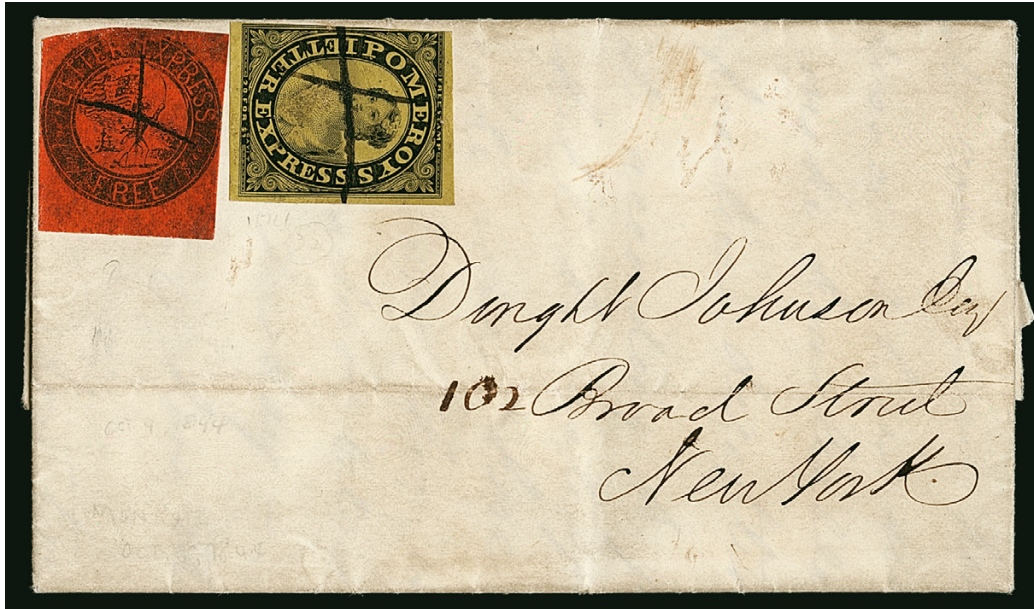 LETTER EXPRESS
FREE
POMEROYS
LETTER EXPRESS
Dwight Johnson Esq
102 Broad Street
New York.
OCT 4, 1844